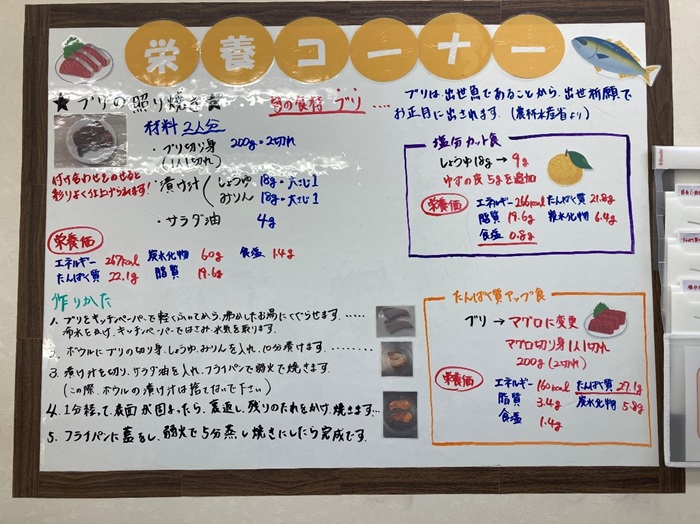 栄養コーナー
★ブリの照り焼き★
旬の食材 ブリ....
ブリは出世魚であることから、出世祈願で
お正月に出されます。(農林水産省より)
材料 2人分
・ブリ切り身 200g=2切れ
(1人1切れ)
付け合わせをのせると
彩りよく仕上げられます!
・漬け汁
しょうゆ 18g=大さじ1
みりん 18g=大さじ1
・サラダ油 4g
栄養価
エネルギー 267kcal 炭水化物 60g 食塩 1.4g
たんぱく質 22.1g 脂質 19.6g
塩分カット食
しょうゆ18g→9g
ゆずの皮5gを追加
栄養価
エネルギー 266kcal たんぱく質 21.8g
脂質 19.6g 炭水化物 6.4g
食塩 0.8g
作りかた
1. ブリをキッチンペーパーで軽くふいてから、沸かしたお湯にくぐらせます。.....
冷水をかけ、キッチンペーパーではさみ、水気を取ります。
2. ボウルにブリの切り身、しょうゆ、みりんを入れ、10分漬けます。........
3. 漬け汁を切り、サラダ油を入れ、フライパンで弱火で焼きます。
(この際、ボウルの漬け汁は捨てないで下さい)
4. 1分経って、表面が固まったら、裏返し、残りのたれをかけ、焼きます...
5. フライパンに蓋をし、弱火で5分蒸し焼きにしたら完成です。
たんぱく質アップ食
ブリ→マグロに変更
マグロ切り身1人1切れ
200g(2切れ)
栄養価
エネルギー 160kcal たんぱく質 27.1g
脂質 3.4g 炭水化物 5.8g
食塩 1.4g